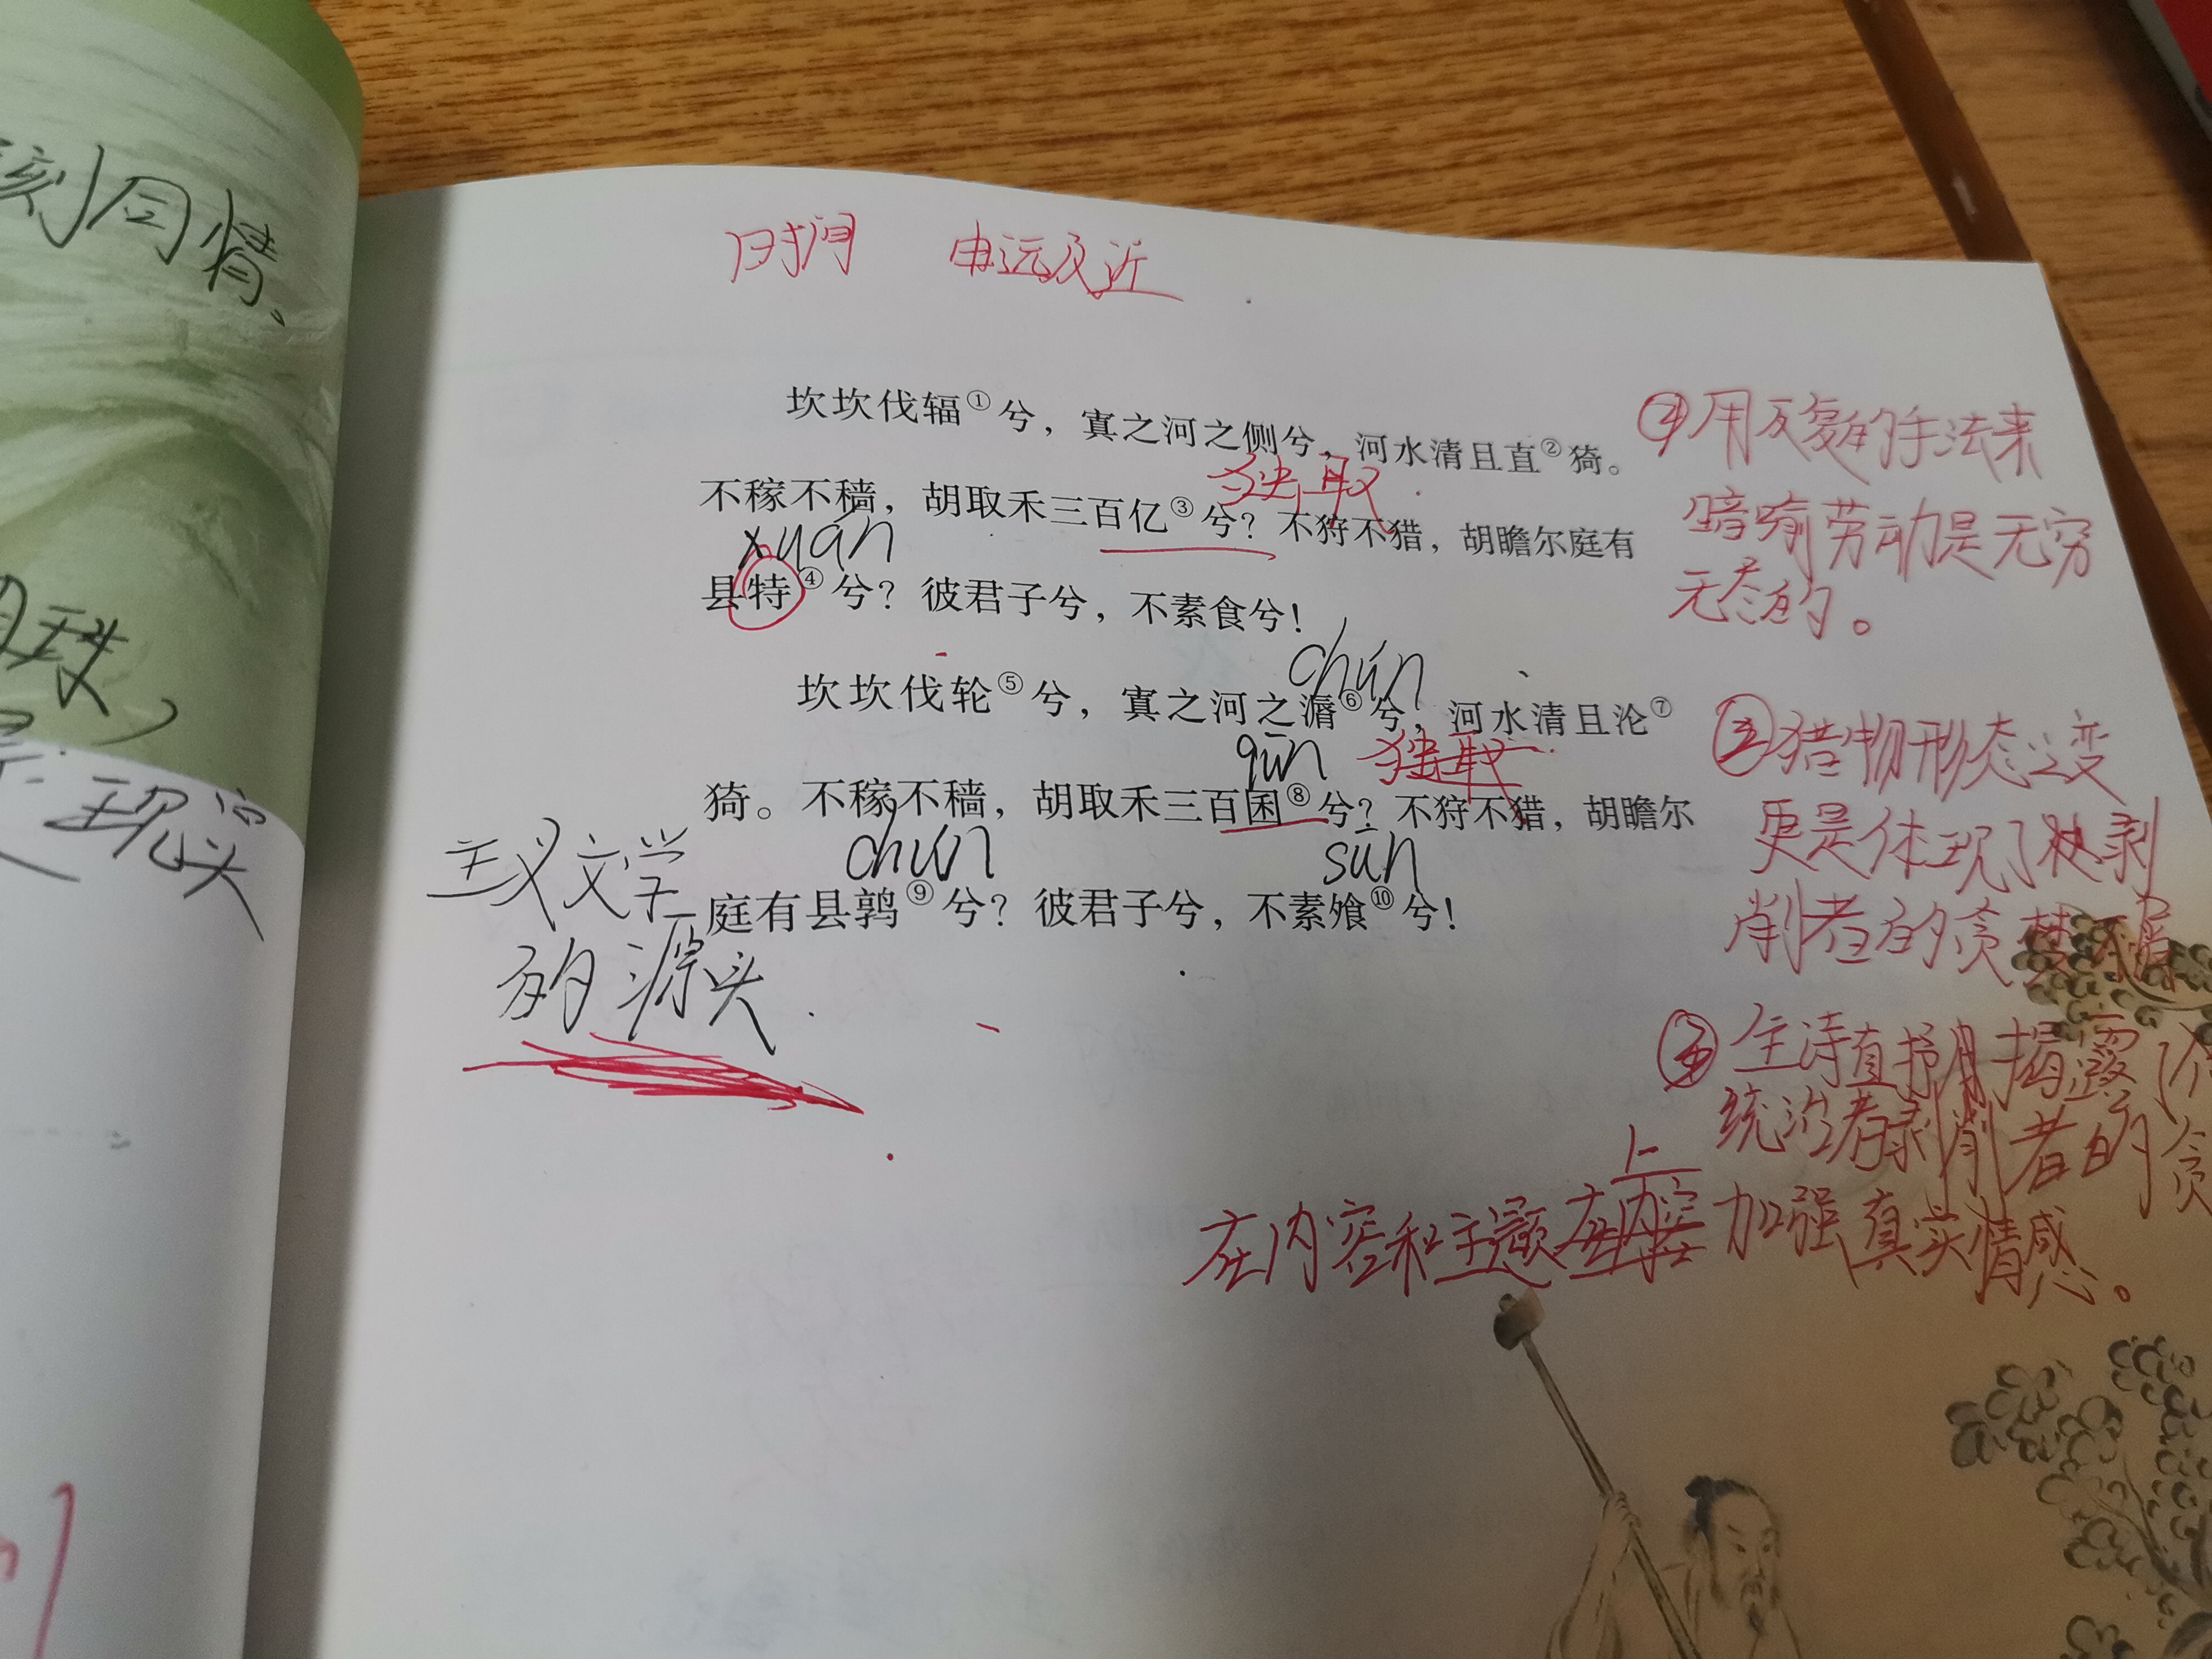 刻同情。
现实
时间 由远及近
坎坎伐辐①兮，寘之河之侧兮，河水清且直②猗。
独取
不稼不穑，胡取禾三百亿③兮？不狩不猎，胡瞻尔庭有
xuán
县特④兮？彼君子兮，不素食兮！
chún
坎坎伐轮⑤兮，寘之河之漘⑥兮，河水清且沦⑦
qūn 独取
猗。不稼不穑，胡取禾三百囷⑧兮？不狩不猎，胡瞻尔
chún sūn
庭有县鹑⑨兮？彼君子兮，不素飧⑩兮！
主义文学
的源头
用反复的手法来
暗喻劳动是无穷
无尽的。
猎物形态之变
更是体现了剥
削者的贪婪
③全诗直抒 揭露
统治者剥削者的贪
上
在内容和主题在内容加强真实情感。